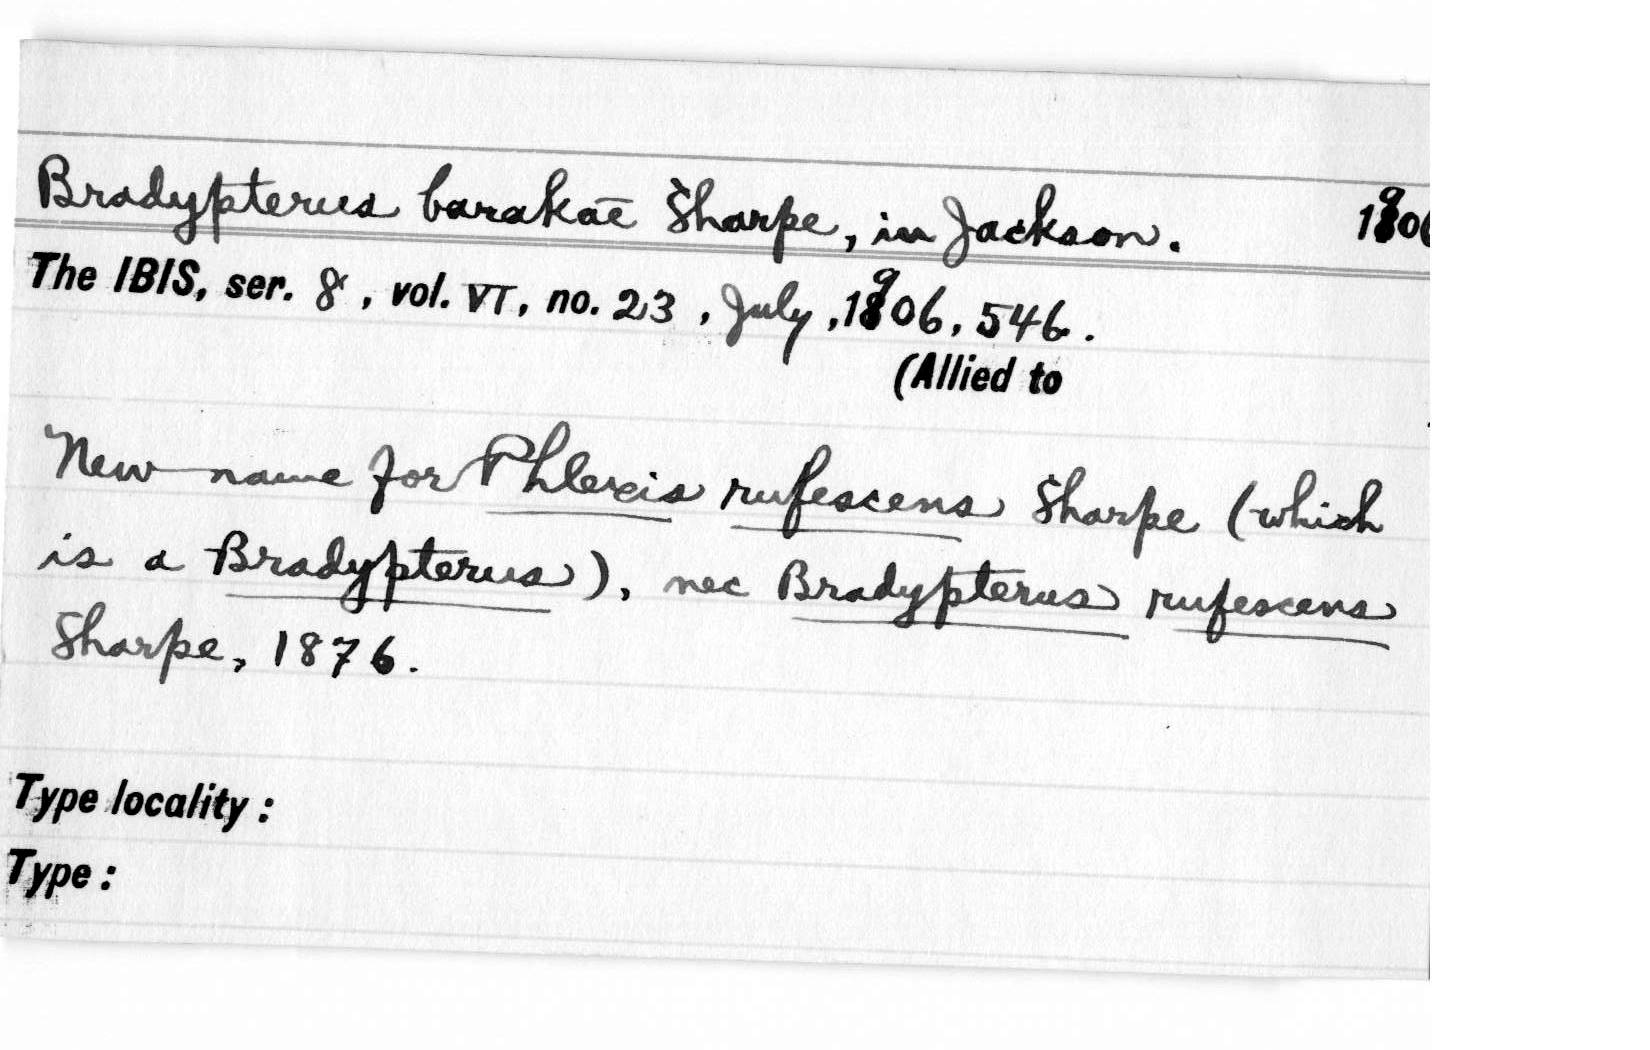 Bradypterus barakae Sharpe, in Jackson. 1906
The IBIS, ser. 8, vol. VI, no. 23, July, 1906, 546.
(Allied to
New name for Phlexis rufescens Sharpe (which
is a Bradypterus), nec Bradypterus rufescens
Sharpe, 1876.
Type locality:
Type: